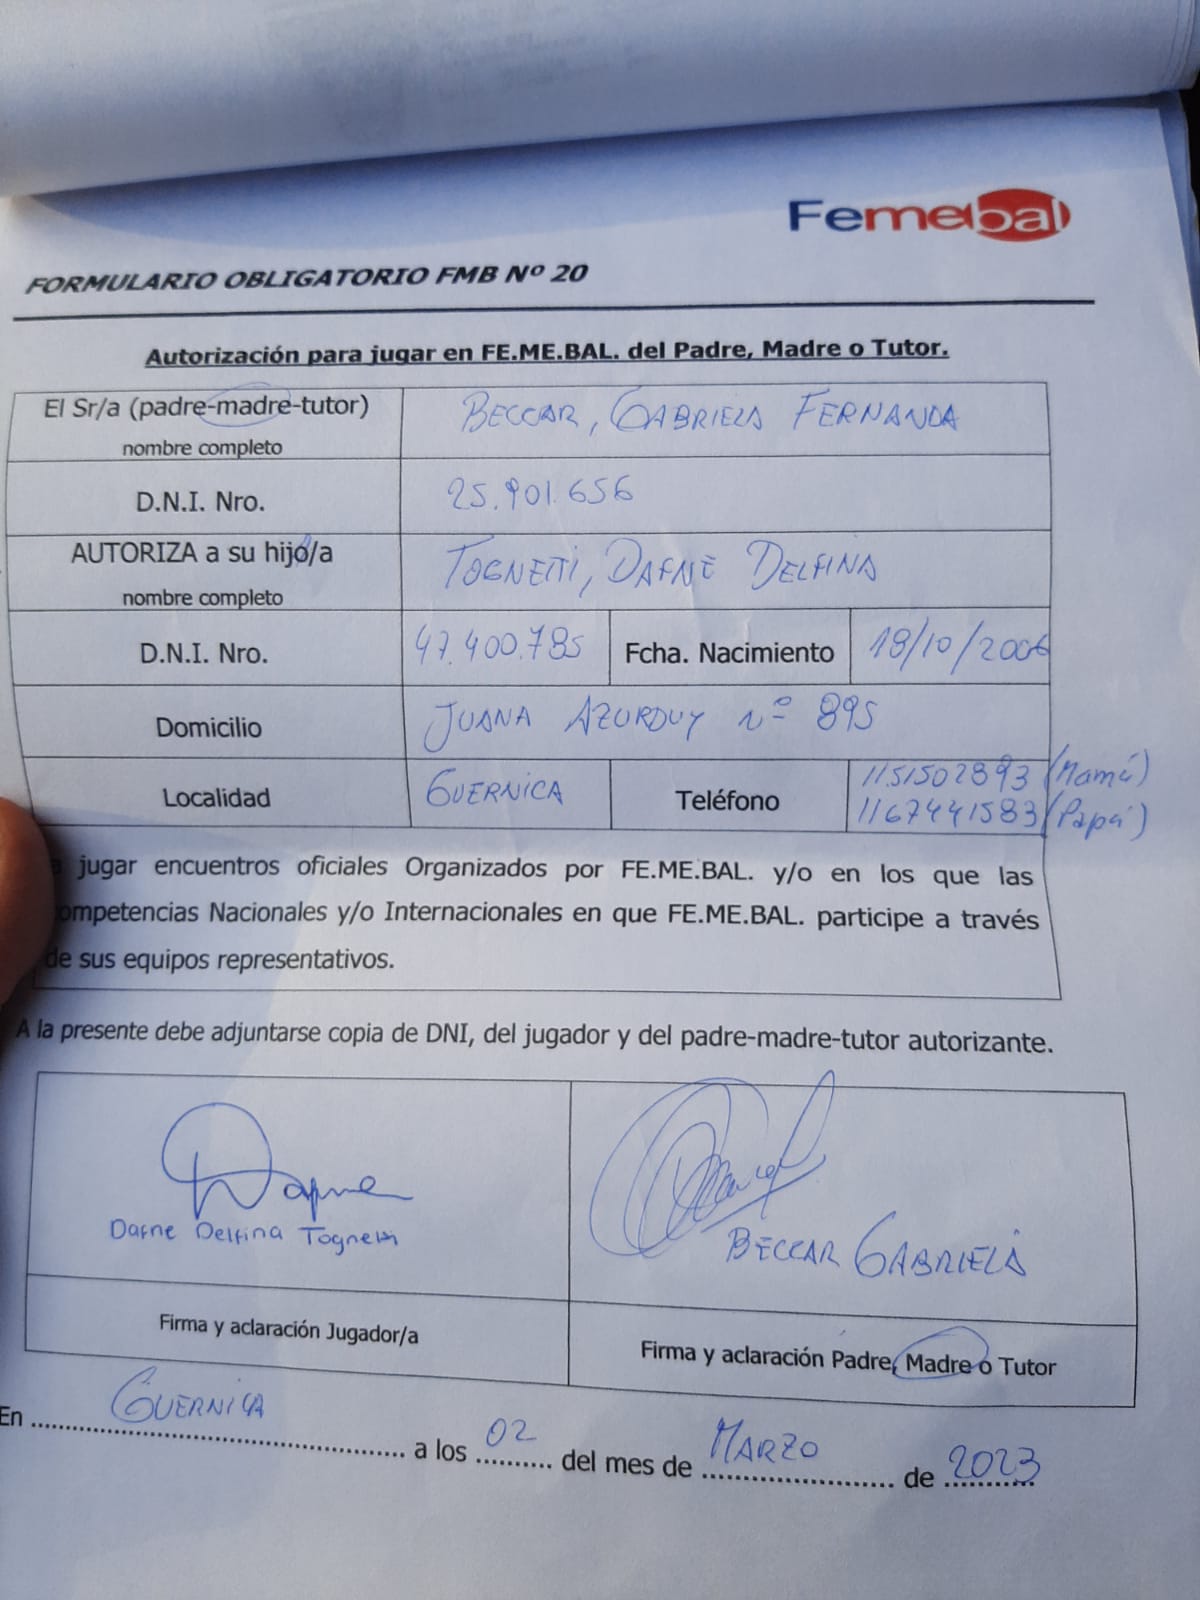 Femebal
FORMULARIO OBLIGATORIO FMB Nº 20
Autorización para jugar en FE.ME.BAL. del Padre, Madre o Tutor.
El Sr/a (padre-madre-tutor) BECCAR, GABRIELA FERNANDA
nombre completo
D.N.I. Nro. 25.901.656
AUTORIZA a su hijo/a TOGNETTI, DAFNE DELFINA
nombre completo
D.N.I. Nro. 47.400.785 Fcha. Nacimiento 18/10/2006
Domicilio JUANA AZURDUY Nº 895
Localidad GUERNICA Teléfono 1151502893 (Mamá)
1167441583 (Papá)
a jugar encuentros oficiales Organizados por FE.ME.BAL. y/o en los que las
competencias Nacionales y/o Internacionales en que FE.ME.BAL. participe a través
de sus equipos representativos.
A la presente debe adjuntarse copia de DNI, del jugador y del padre-madre-tutor autorizante.
Dafne
Dafne Delfina Tognetti
BECCAR GABRIELA
Firma y aclaración Jugador/a
Firma y aclaración Padre, Madre o Tutor
En GUERNICA a los 02 del mes de MARZO de 2023